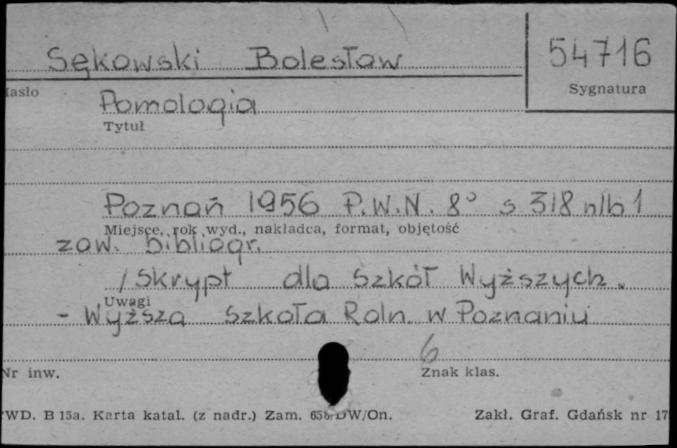 Sękowski Bolesław
54716
Sygnatura
Hasło
Pomologia
Tytuł
Poznań 1956 P.W.N. 8° s 318 nlb 1
Miejsce, rok wyd., nakładca, format, objętość
zaw. bibliogr.
/Skrypt dla Szkół Wyższych.
Uwagi
- Wyższa Szkoła Roln. w Poznaniu
6
Nr inw.
Znak klas.
WD. B 15a. Karta katal. (z nadr.) Zam. DW/On.
Zakł. Graf. Gdańsk nr 17